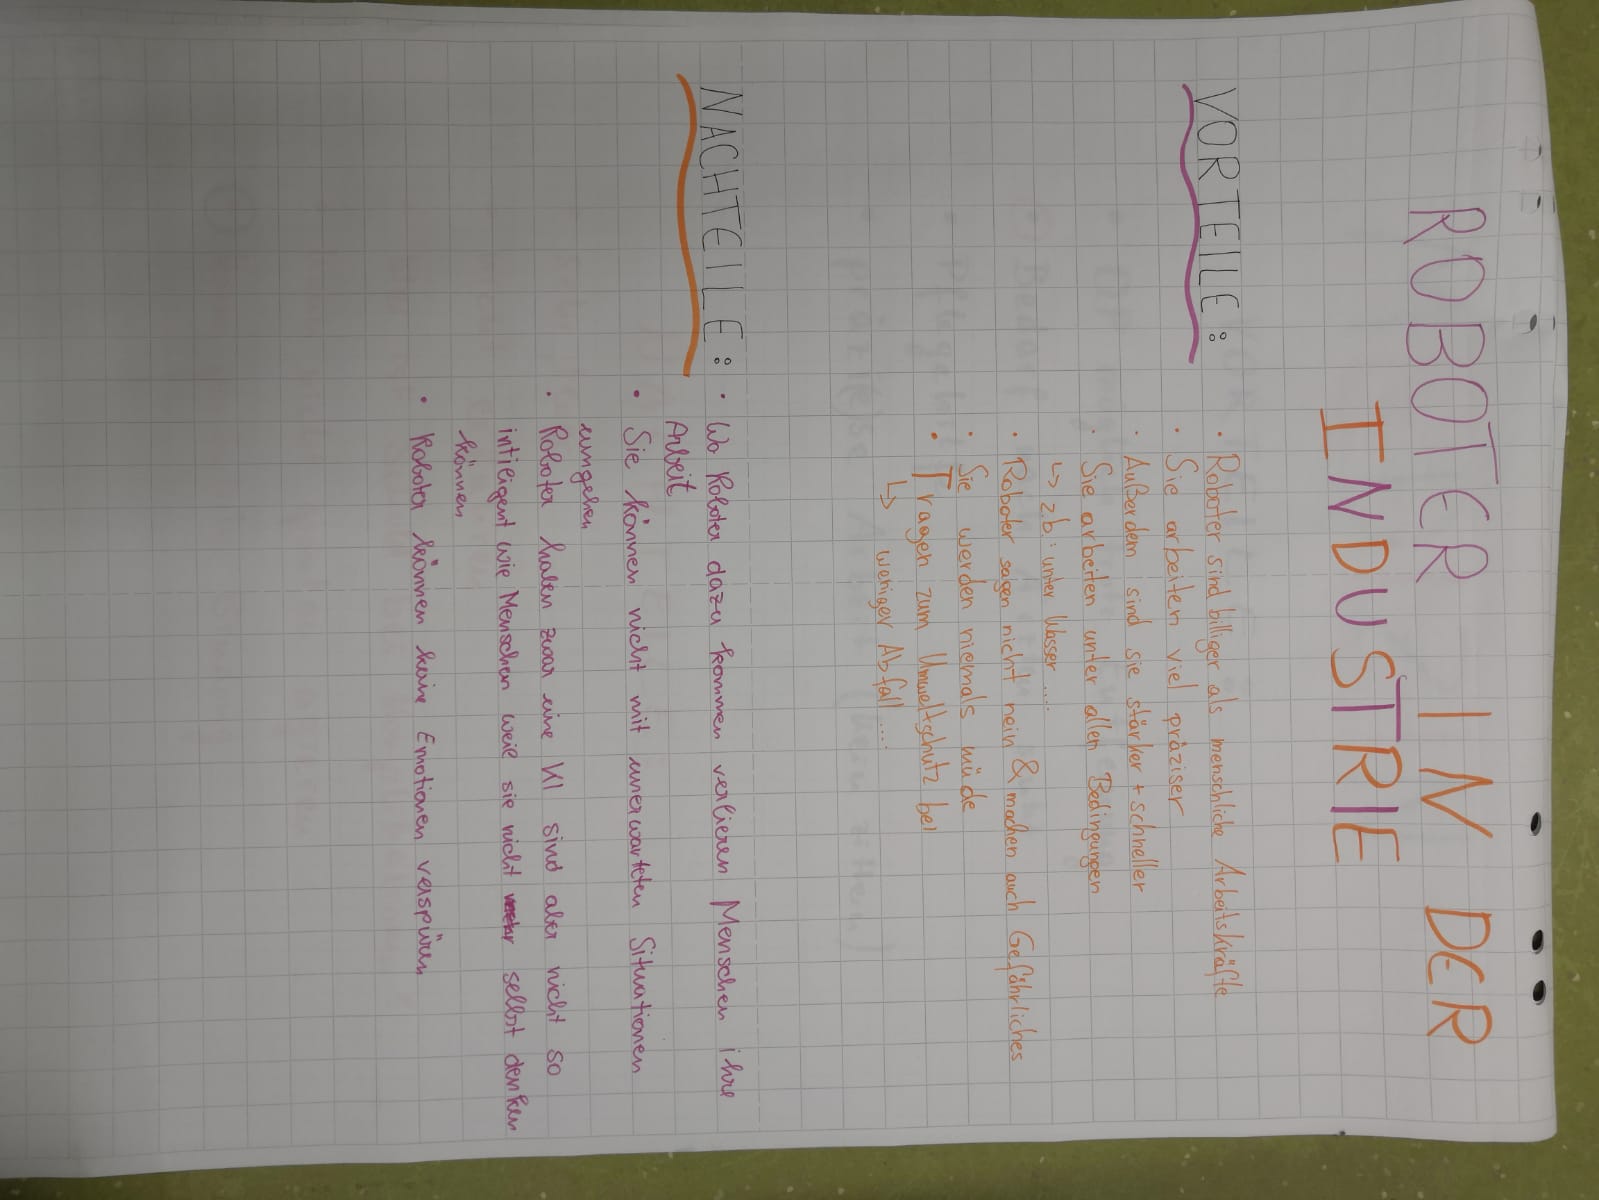 ROBOTER IN DER
INDUSTRIE
VORTEILE:
· Roboter sind billiger als menschliche Arbeitskräfte
· Sie arbeiten viel präziser
· Außerdem sind sie stärker + schneller
· Sie arbeiten unter allen Bedingungen
↳ z.b.: unter Wasser ....
· Roboter sagen nicht nein & machen auch Gefährliches
· Sie werden niemals müde
· Tragen zum Umweltschutz bei
↳ weniger Abfall ....
NACHTEILE:
· Wo Roboter dazu kommen verlieren Menschen ihre
Arbeit
· Sie können nicht mit unerwarteten Situationen
umgehen
· Roboter haben zwar eine KI sind aber nicht so
intiligent wie Menschen weil sie nicht selbst denken
können
· Roboter können keine Emotionen verspüren